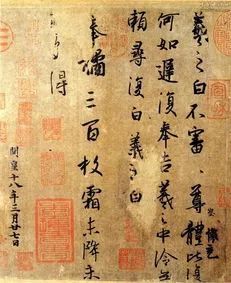 羲之白不審尊體比復
何如遲復奉告羲之中冷無
賴尋復白羲之白
奉橘三百枚霜未降未
可多得
開皇十八年三月廿七日